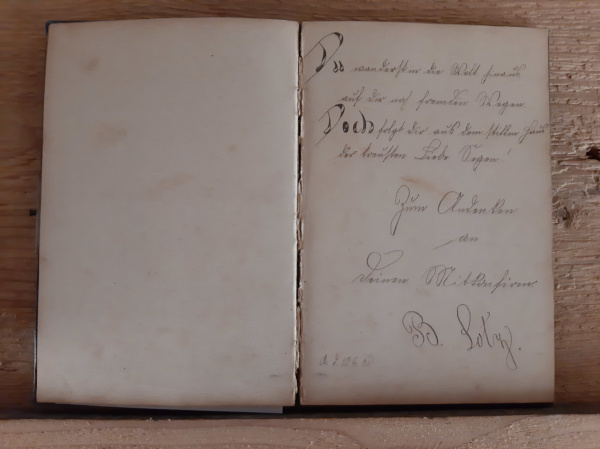 Du wanderst in die Welt hinaus
auf dir noch fremden Wegen
Doch folgt dir aus dem stillen Haus
der treusten Liebe Segen!
Zum Andenken
an
Deinen Mitkonfirm.
B. Lotz.